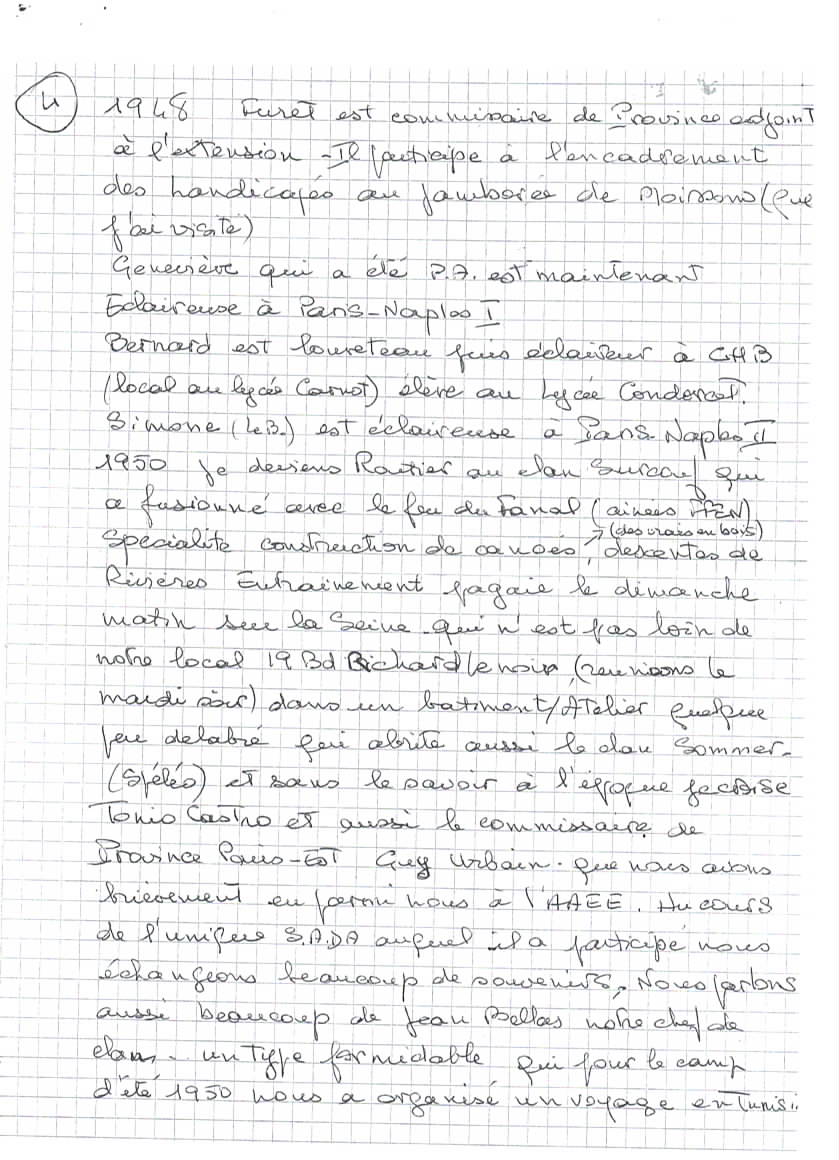 4
1948 Furet est commissaire de Province adjoint
à l'extension - Il participe à l'encadrement
des handicapés au jamborée de Moisson (que
j'ai visité)
Geneviève qui a été P.A. est maintenant
Eclaireuse à Paris-Naples I
Bernard est louveteau puis éclaireur à CHB
(local au lycée Carnot) élève au Lycée Condorcet.
Simone (LeB.) est éclaireuse à Paris-Naples II
1950 je deviens Routier au clan Surcouf qui
a fusionné avec le feu du Fanal (ainées FFEN)
(des vrais en bois)
Spécialité construction de canoés, descentes de
Rivières Entrainement pagaie le dimanche
matin sur la Seine qui n'est pas loin de
notre local 19 Bd Richard lenoir, (reunions le
mardi soir) dans un batiment/Atelier quelque
peu delabré qui abrite aussi le clan Sommer-
(Spéléo) et sans le savoir à l'époque je croise
Tonio Castro et aussi le commissaire de
Province Paris-Est Guy Urbain. que nous avons
brièvement eu parmi nous à l'AAEE. Au cours
de l'unique S.A.D.A auquel il a participé nous
échangeons beaucoup de souvenirs, Nous parlons
aussi beaucoup de Jean Bellas notre chef de
clan. un type formidable qui pour le camp
d'été 1950 nous a organisé un voyage en Tunisi..